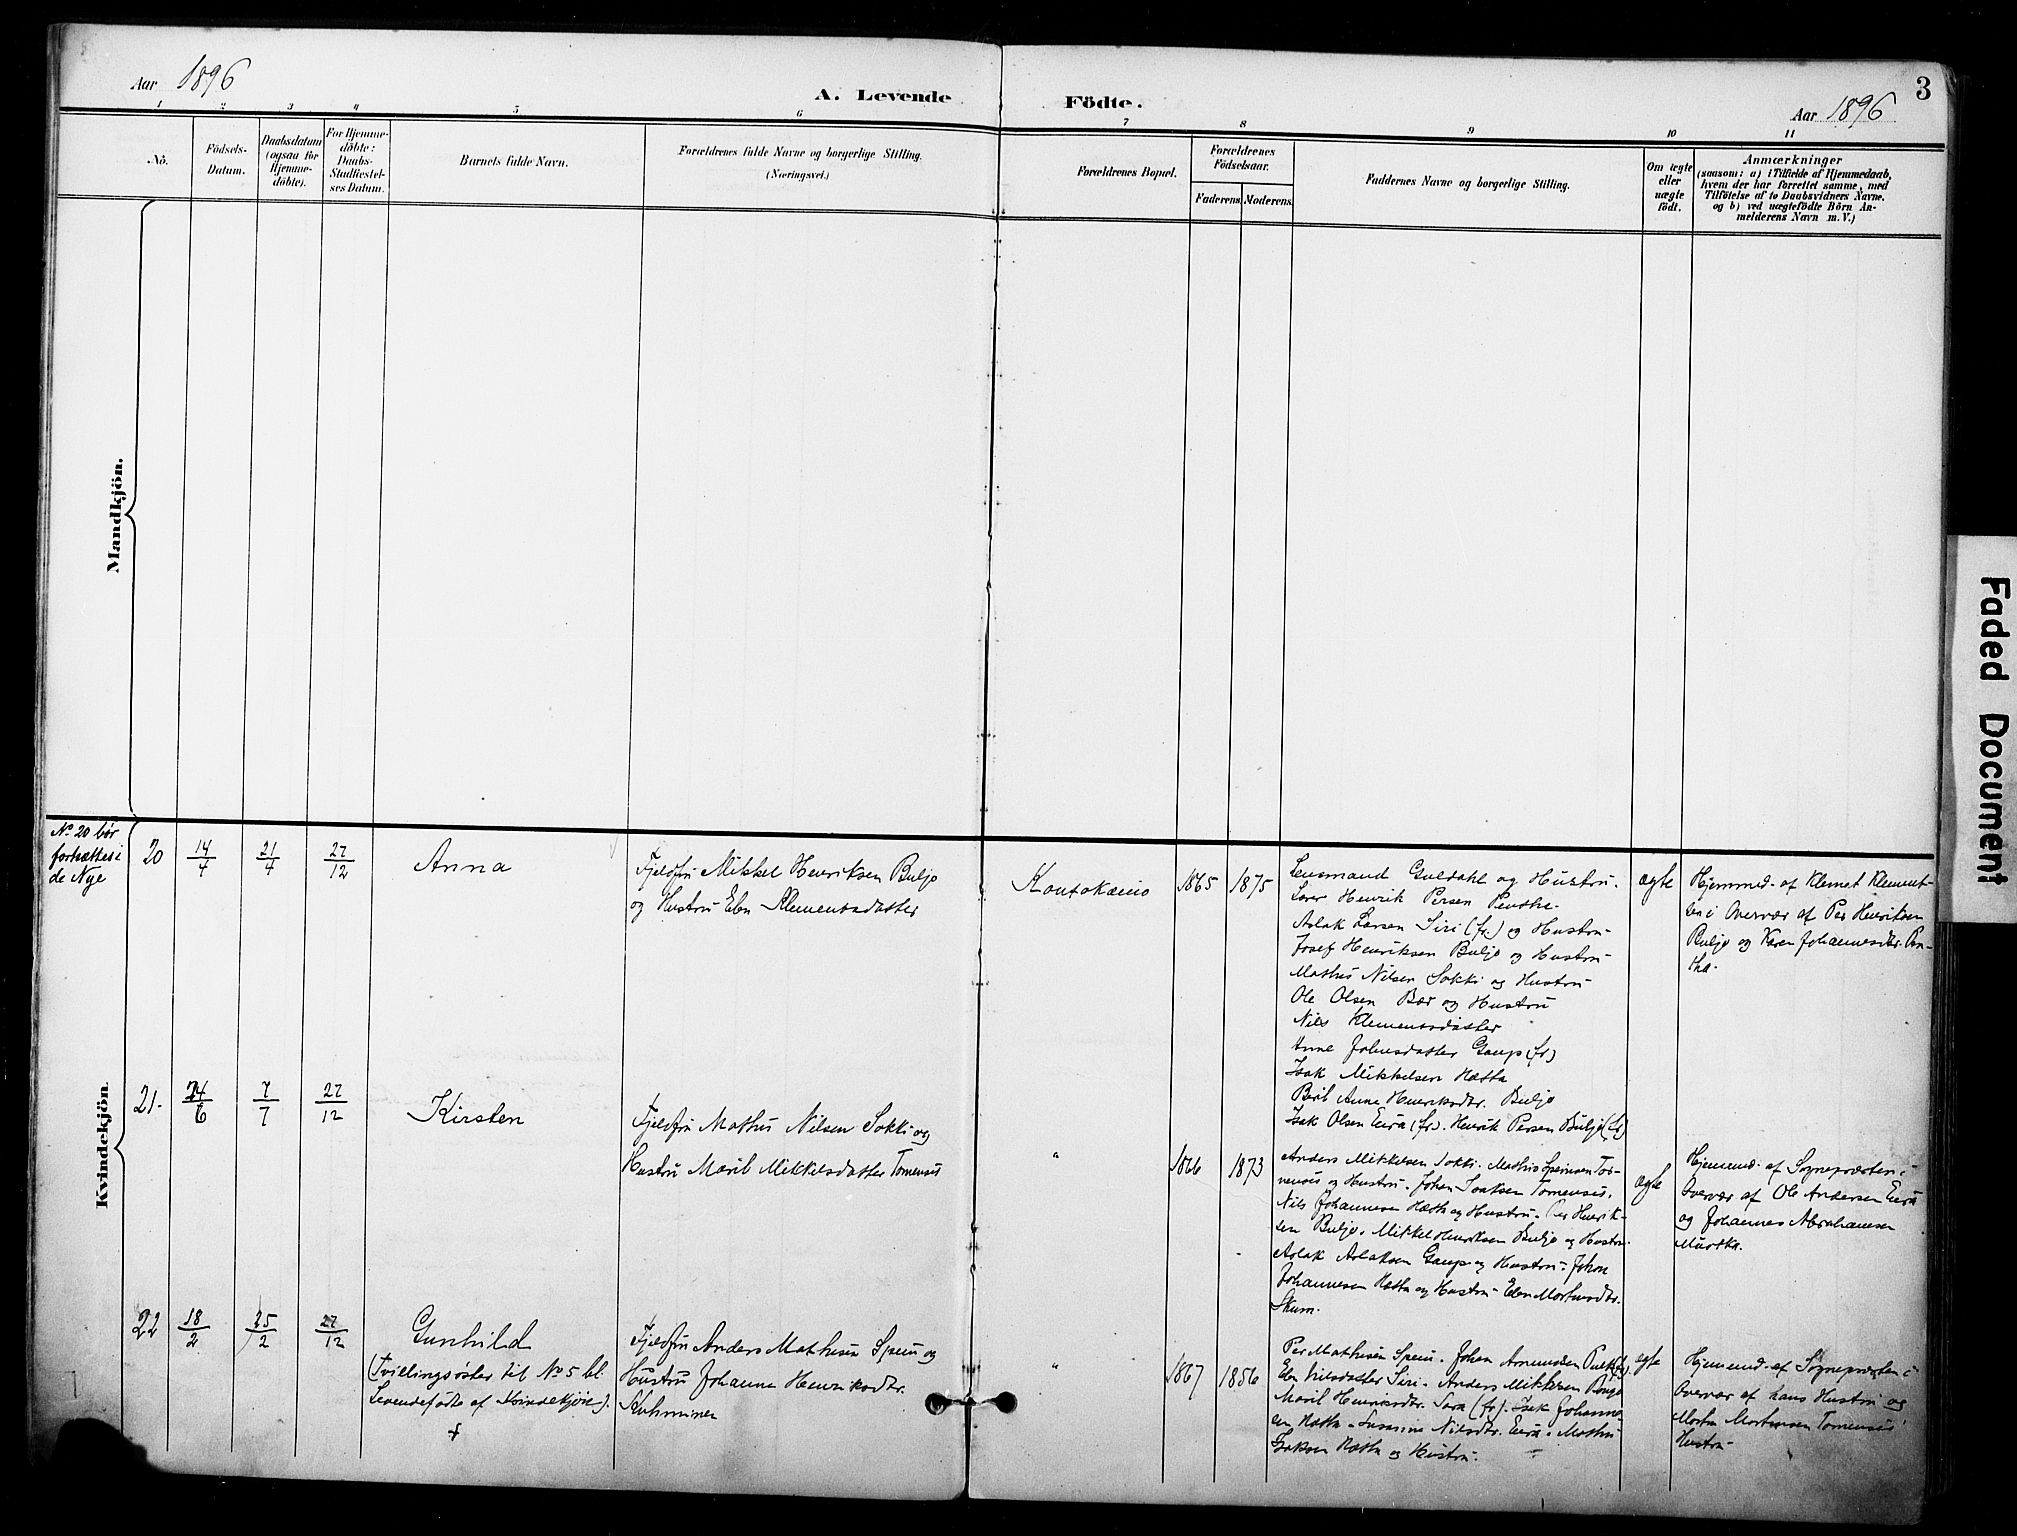 Aar 1896
A. Levende Födte.
Aar 1896
3
1 2 3 4 5 6 7 8 9 10 11
No.
Födsels-
Datum.
Daabsdatum
(ogsaa for
Hjemme-
döbte).
For Hjemme-
döbte:
Daabs-
Stadfæstel-
ses Datum.
Barnets fulde Navn.
Forældrenes fulde Navne og borgerlige Stilling.
(Næringsvei.)
Forældrenes Bopæl.
Forældrenes
Födselsaar.
Faderens. Moderens.
Faddernes Navne og borgerlige Stilling.
Om ægte
eller
uægte
födt.
Anmærkninger
(saasom: a) i Tilfælde af Hjemmedaab,
hvem der har forrettet samme, med
Tilföielse af to Daabsvidners Navne.
og b) ved uægtefödte Börn An-
melderens Navn m. V.)
Mandkjön.
Kvindekjön.
No. 20 bør
fortsættes i
de Nye
20
14/4
21/4
27/12
Anna
Fjeldfin Mikkel Henriksen Buljo
og Hustru Elen Klemensdatter
Koutokæino
1865
1875
Lensmand Guldahl og Hustru.
Lærer Henrik Persen Pentha.
Aslak Larsen Siri (fr.) og Hustru
Josef Henriksen Buljo og Hustru
Mathis Nilsen Sokki og Hustru
Ole Olsen Bær og Hustru
Nils Klemensdatter
Anne Johnsdatter Gaup (fr)
Isak Mikkelsen Hætta
Berit Anne Henriksdtr. Buljo
Isak Olsen Eira (fr). Henrik Persen Buljo (fr)
ægte
Hjemmed. af Klemet Klemet-
sen i Overvær af Per Henriksen
Buljo og Karen Johannesdtr. Pen-
tha.
21.
24/6
7/7
27/12
Kirsten
Fjeldfin Mathis Nilsen Sokki og
Hustru Marit Mikkelsdatter Tornensis
"
1866
1873
Anders Mikkelsen Sokki. Mathis Tor-
nensis og Hustru. Johan Isaksen Tornensis.
Nils Johannesen Hætta og Hustru. Per Henrik-
sen Buljo. Mikkel Henriksen Buljo og Hustru.
Aslak Aslaksen Gaup og Hustru. Johan
Johannesen Hætta og Hustru. Elen Mortensdtr.
Skum.
ægte
Hjemmed. af Sognepræsten i
Overvær af Ole Andersen Eira
og Johannes Abrahamsen
22
18/2
25/2
27/12
Gunhild
(Tvillingsøster til No 5 bl.
Levendefødte af Kvindekjön).
Fjeldfin Anders Mathisen Spein og
Hustru Johanne Henriksdtr.
Kuhmunen
"
1867
1856
Per Mathisen Spein. Johan Amundsen
Elen Nilsdatter Siri. Anders Mikkelsen
Marit Henriksdtr. Sara (fr). Isak Johanne-
sen Hætta. Susanne Nilsdtr. Eira. Mathis
Isaksen Hætta og Hustru.
ægte
Hjemmed. af Sognepræsten i
Overvær af hans Hustru og
Morten Mortensen Tornensis'
Hustru
Faded Document